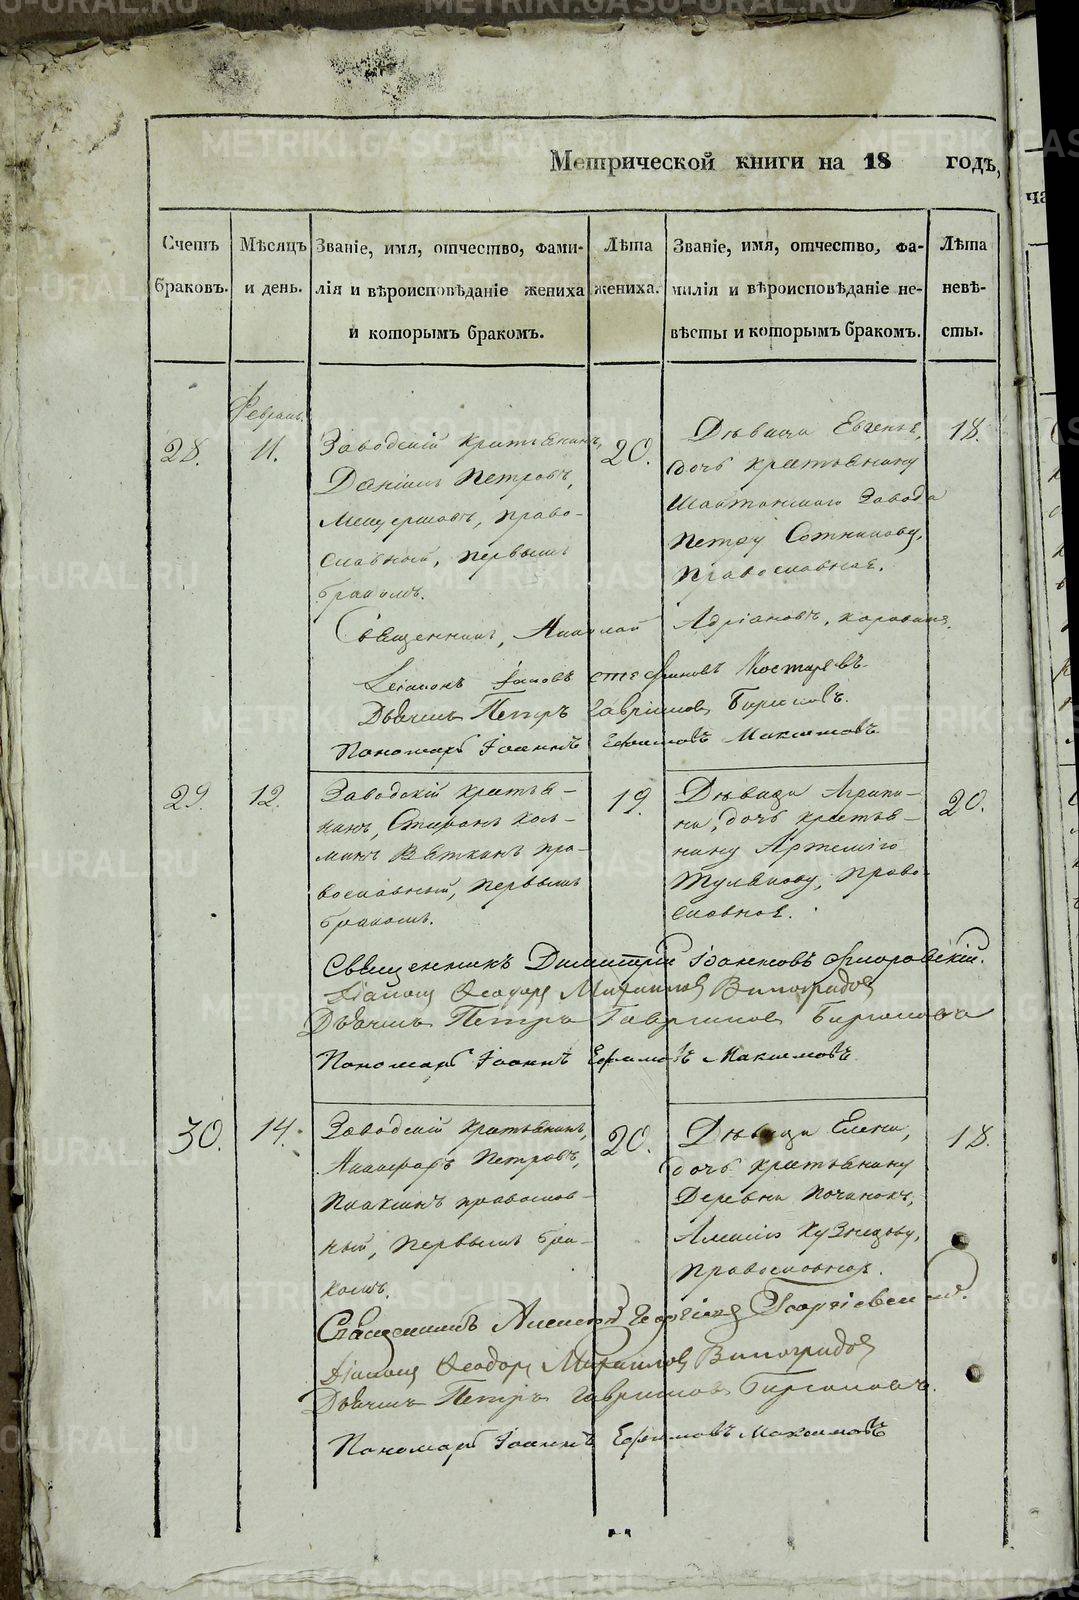 Метрической книги на 18 годъ,
Счетъ браковъ.
Мѣсяцъ и день.
Званіе, имя, отчество, фами-
лія и вѣроисповѣданіе жениха
и которымъ бракомъ.
Лѣта жениха.
Званіе, имя, отчество, фа-
милія и вѣроисповѣданіе не-
вѣсты и которымъ бракомъ.
Лѣта невѣ-
сты.
28.
Февраль
11.
Заводскій крестьянинъ,
Даніилъ Петровъ,
право-
славный, первымъ
бракомъ.
20.
Дѣвица Евгенья,
дочь крестьянину
Шайтанскаго Завода
Петру Сотникову,
Православная.
18.
Священникъ, Николай Адріановъ,
Діаконъ Іаковъ Стефановъ Костаревъ
Дьячекъ Петръ Гавриловъ
Пономарь Іоаннъ Ефимовъ Максимовъ
29.
12.
Заводскій крестья-
нинъ, Спиридонъ Козь-
минъ Вяткинъ пра-
вославный, первымъ
бракомъ.
19.
Дѣвица Агрипи-
на, дочь крестья-
нину Артемію
Тулякову, Право-
славная.
20.
Священникъ Димитрій Іоанновъ Флоровскій.
Діаконъ Ѳеодоръ Михайловъ Виноградовъ
Дьячекъ Петръ Гавриловъ
Пономарь Іоаннъ Ефимовъ Максимовъ
30.
14.
Заводскій крестьянинъ,
Никифоръ Петровъ,
православ-
ный, первымъ бра-
комъ.
20.
Дѣвица Елена,
дочь крестьянину
Деревни Починокъ,
Алексію Кузнецову,
Православная.
18.
Священникъ Алексій Георгіевъ
Діаконъ Ѳеодоръ Михайловъ Виноградовъ
Дьячекъ Петръ Гавриловъ
Пономарь Іоаннъ Ефимовъ Максимовъ
METRIKI.GASO-URAL.RU